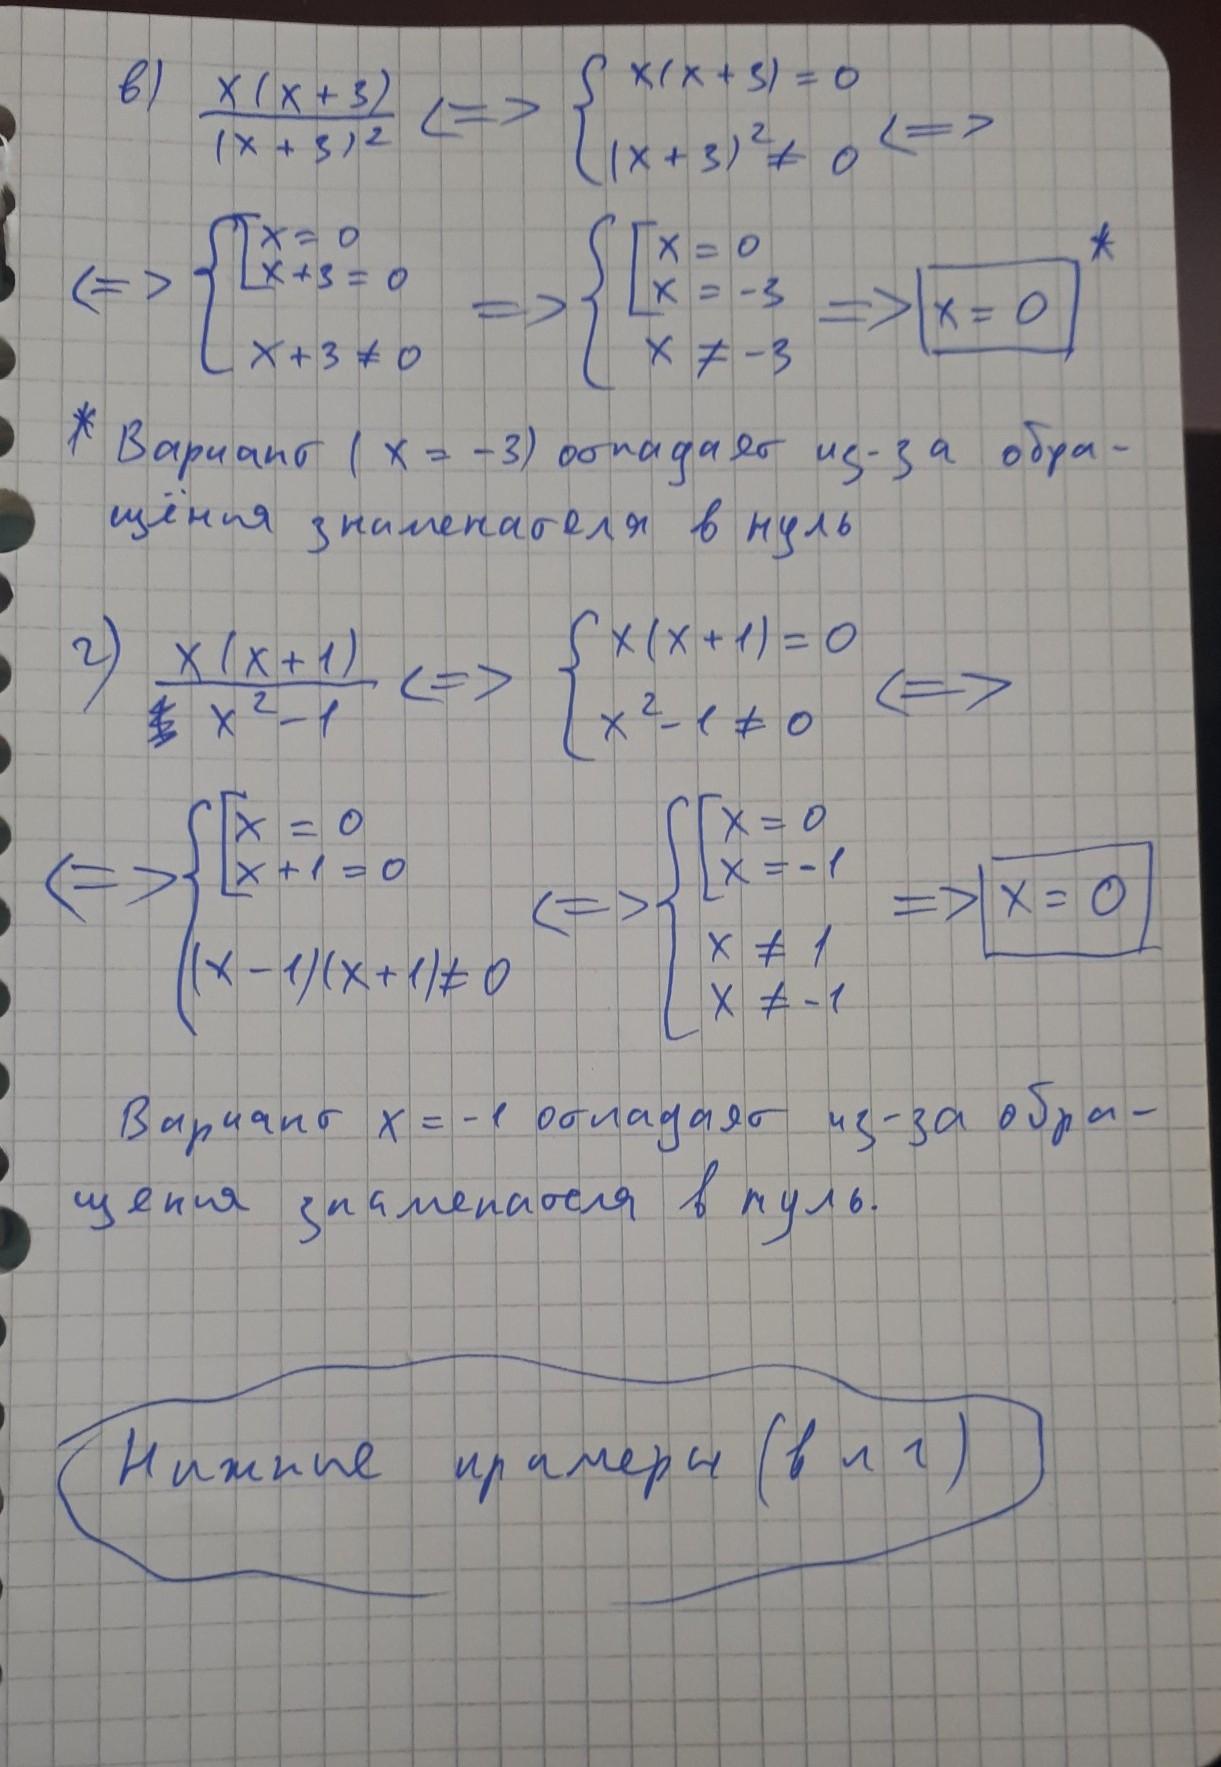 в) x(x+3)/(x+3)² <=> { x(x+3) = 0
(x+3)² ≠ 0 <=>
<=> { [ x = 0
x+3 = 0
x+3 ≠ 0
=> { [ x = 0
x = -3
x ≠ -3
=> x = 0 *
* Вариант (x = -3) отпадает из-за обра-
щёния знаменателя в нуль
г) x(x+1)/x²-1 <=> { x(x+1) = 0
x²-1 ≠ 0 <=>
<=> { [ x = 0
x+1 = 0
(x-1)(x+1) ≠ 0
<=> { [ x = 0
x = -1
x ≠ 1
x ≠ -1
=> x = 0
Вариант x = -1 отпадает из-за обра-
щения знаменателя в нуль.
Нижние примеры (в и г)